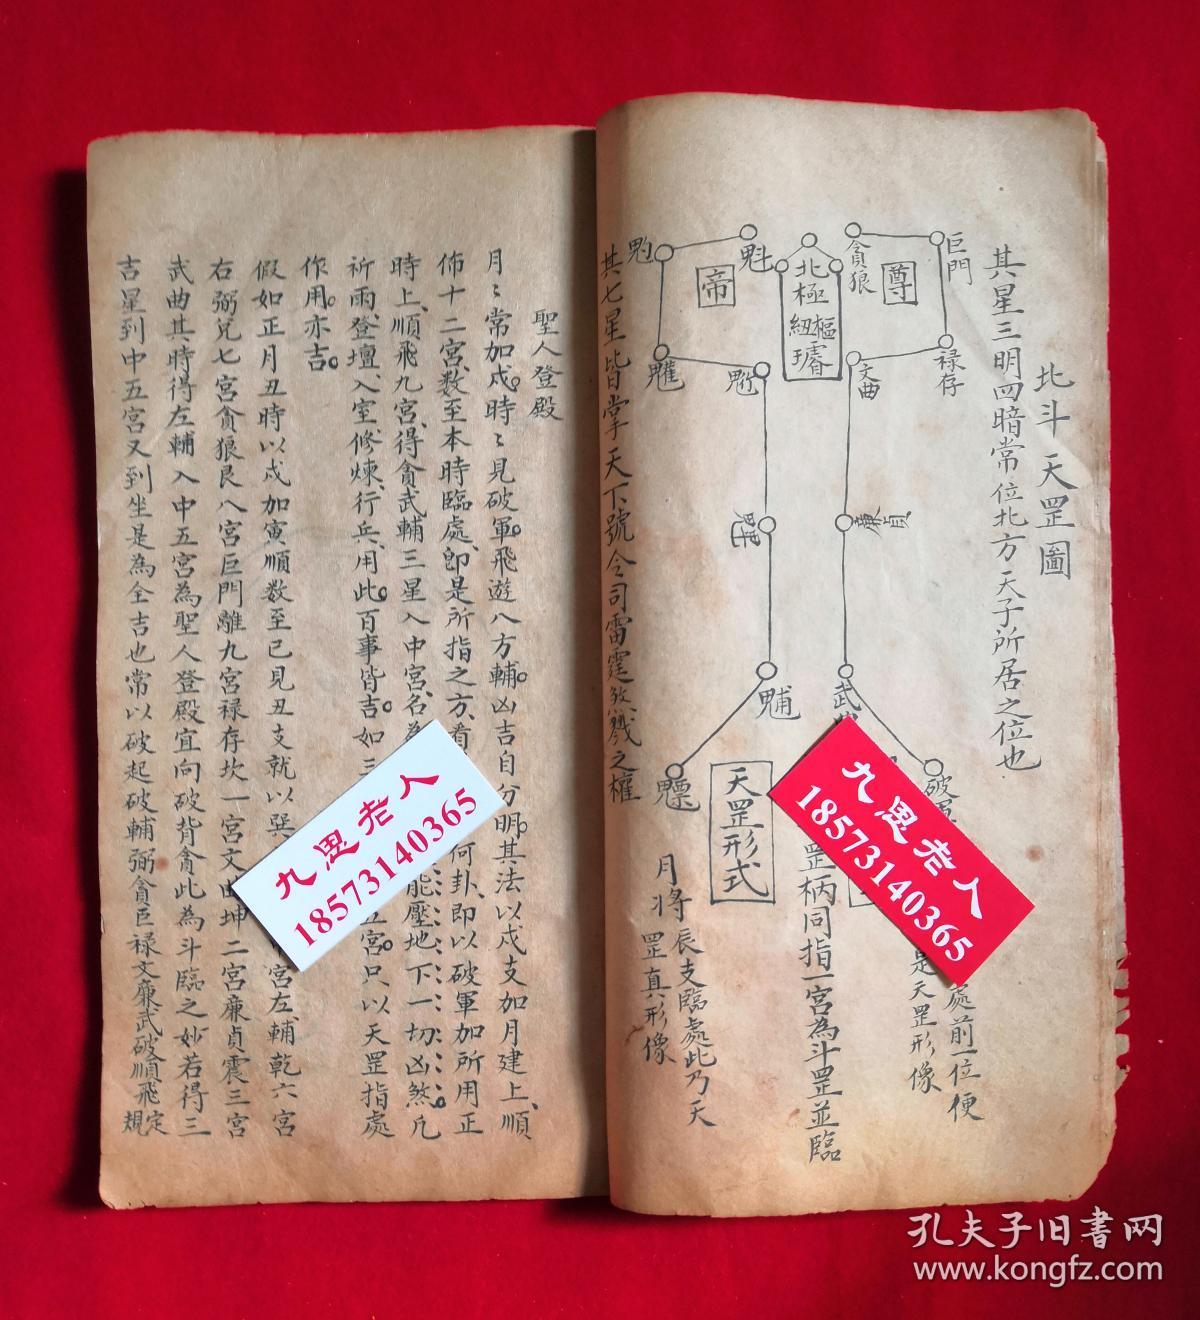 北斗天罡圖
其星三明四暗常位北方天子所居之位也
巨門
祿存
尊
貪狼
文曲
廉貞
武
破軍
處前一位便
是天罡形像
北極
紐樞
帝
魁
魓
魒
罡柄同指一宮為斗罡並臨
天罡形式
月將辰支臨處此乃天
罡真形像
其七星皆掌天下號令司雷霆煞戮之權
聖人登殿
月〻常加戌時〻見破軍飛遊八方輔凶吉自分明其法以戌支加月建上順
佈十二宮数至本時臨處即是所指之方看
何卦即以破軍加所用正
時上順飛九宮得貪武輔三星入中宮名為
能壓地下一切凶煞凡
祈雨登壇入室修煉行兵用此百事皆吉如三
五宮只以天罡指處
作用亦吉
假如正月丑時以戌加寅順数至已見丑支就以巽
宮左輔乾六宮
右弼兌七宮貪狼艮八宮巨門離九宮禄存坎一宮文曲坤二宮廉貞震三宮
武曲其時得左輔入中五宮為聖人登殿宜向破背貪此為斗臨之妙若得三
吉星到中五宮又到坐是為全吉也常以破起破輔弼貪巨禄文廉武破順飛定
規
九思老人
18573140365
九思老人
18573140365
孔夫子旧書网
www.kongfz.com